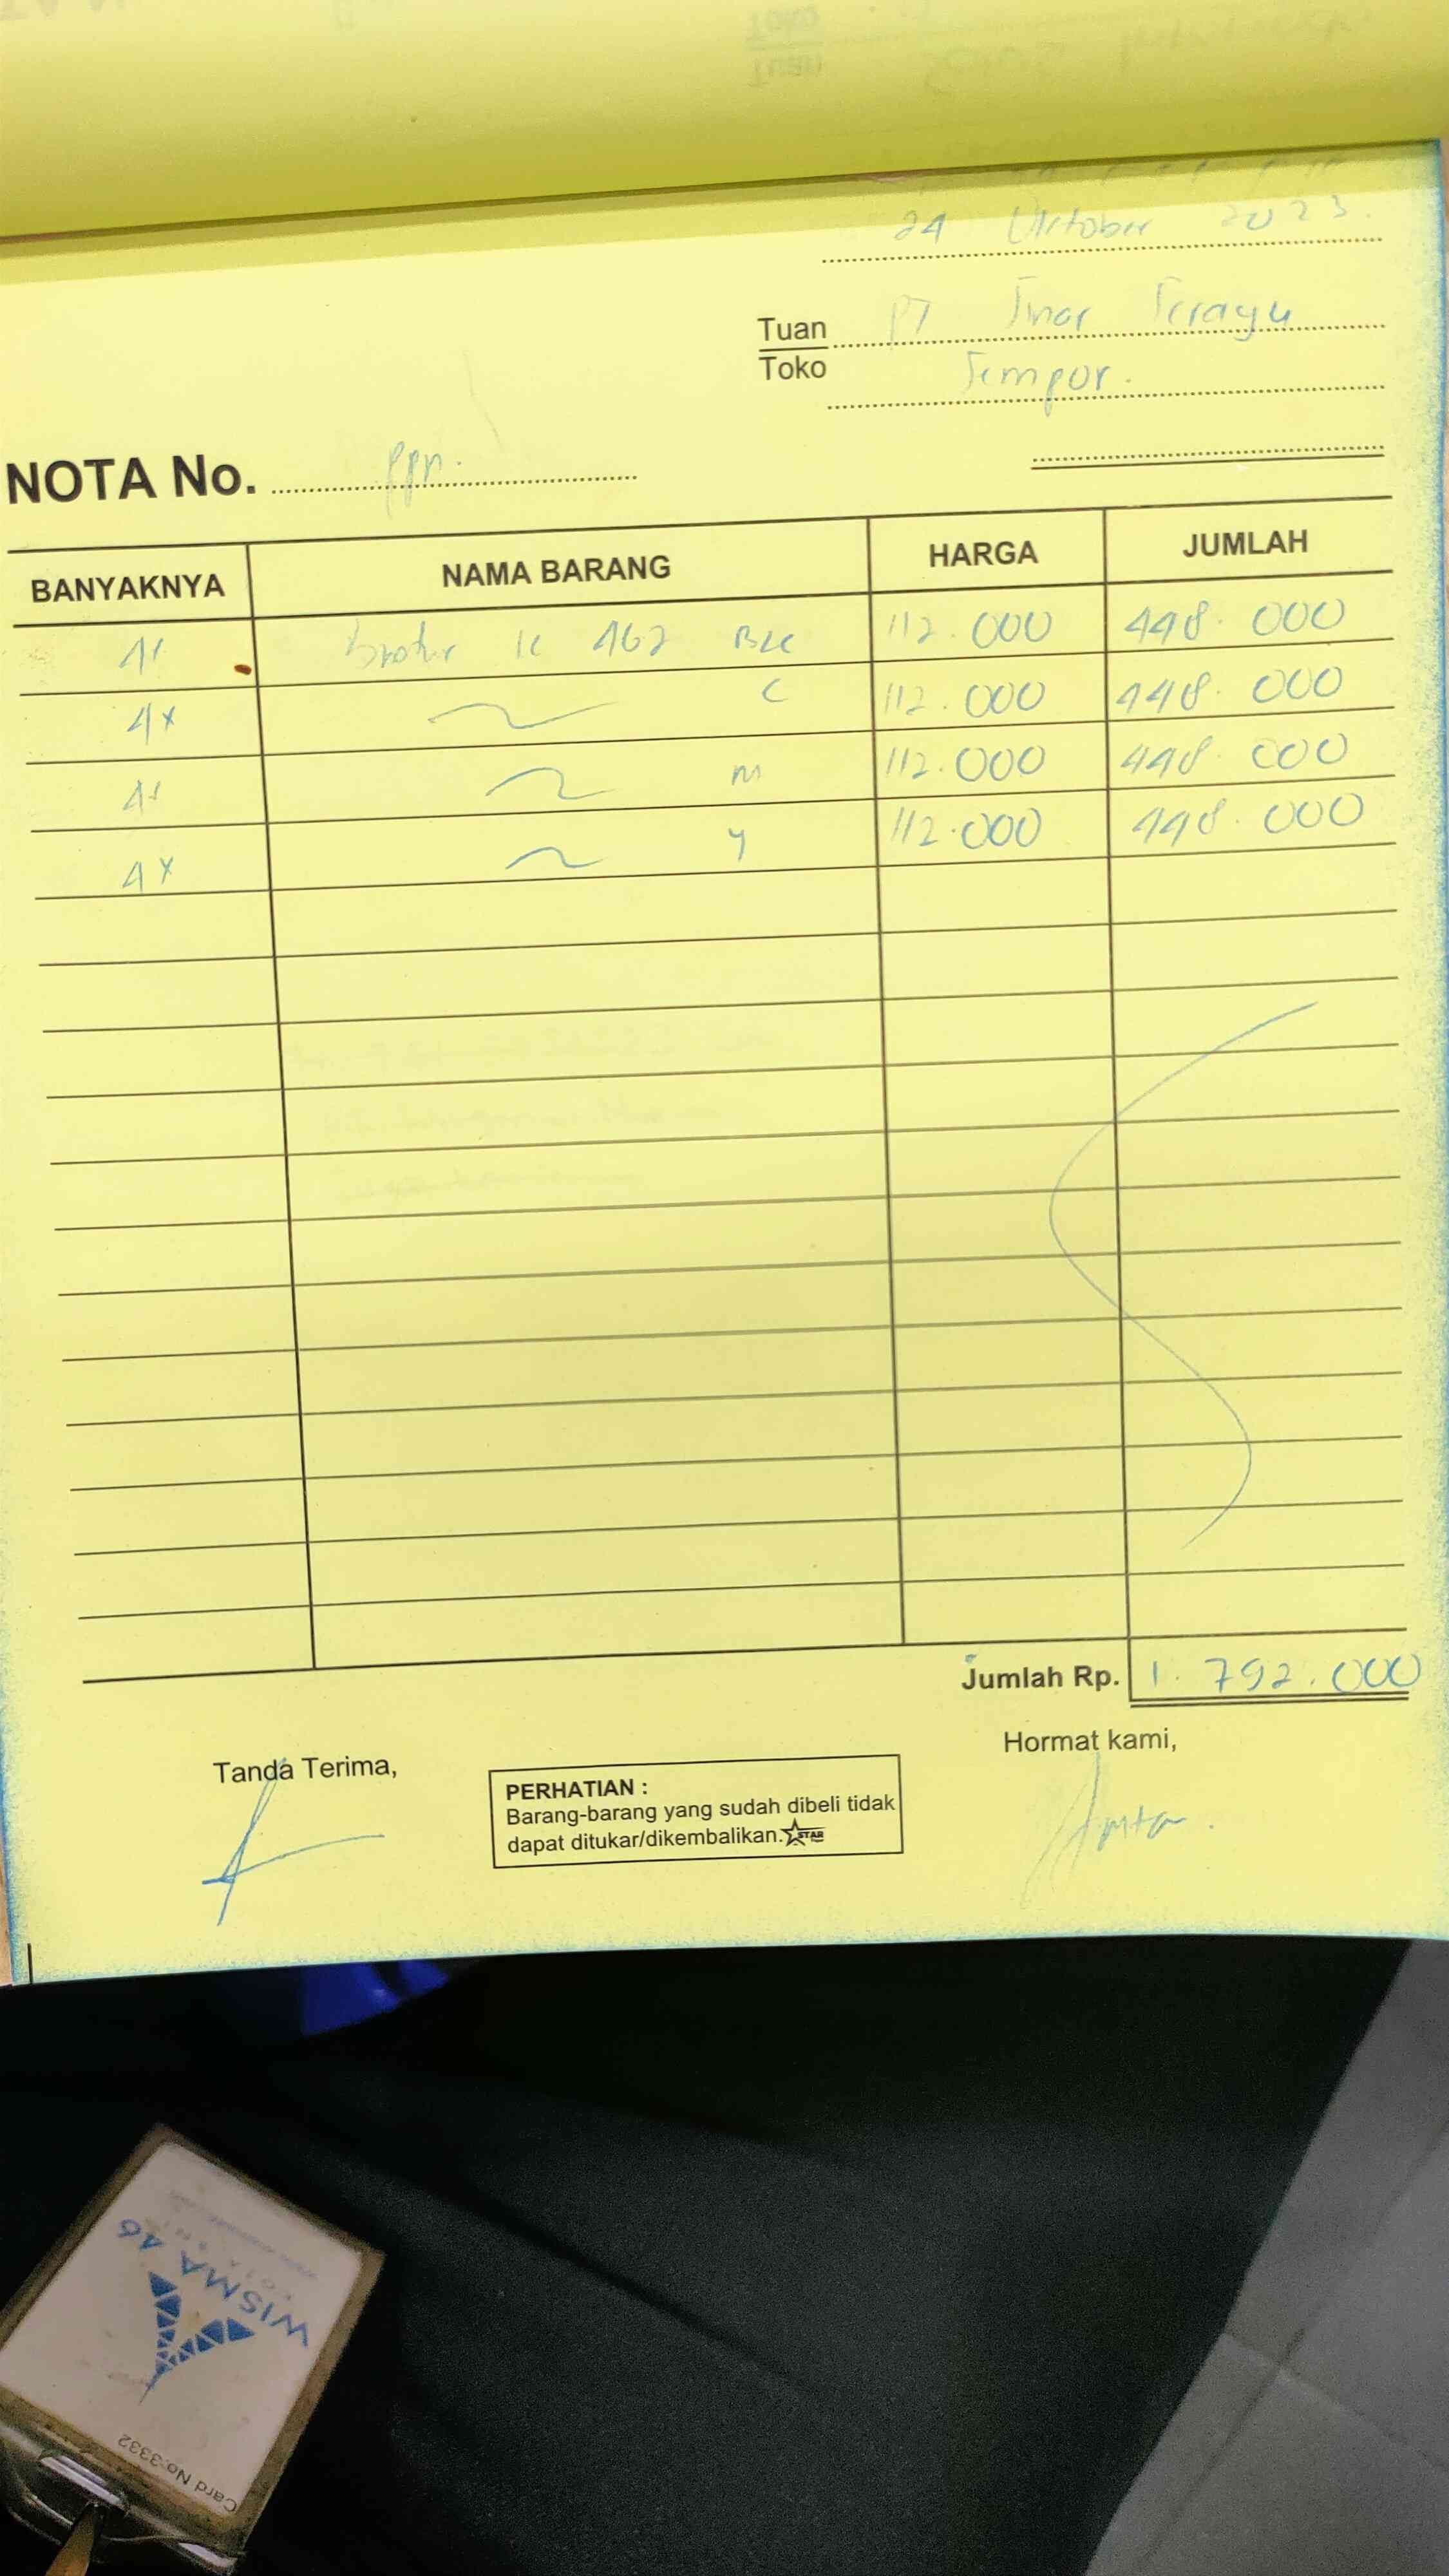 24 Oktober 2023.
Tuan PT Sinar Serayu
Toko Sempor.
NOTA No. ppn.
BANYAKNYA NAMA BARANG HARGA JUMLAH
4x brother lc 462 BLK 112.000 448.000
4x C 112.000 448.000
4x m 112.000 448.000
4x y 112.000 448.000
Jumlah Rp. 1.792.000
Tanda Terima,
Hormat kami,
PERHATIAN :
Barang-barang yang sudah dibeli tidak
dapat ditukar/dikembalikan. STAR
WISMA 46
Card No:3332